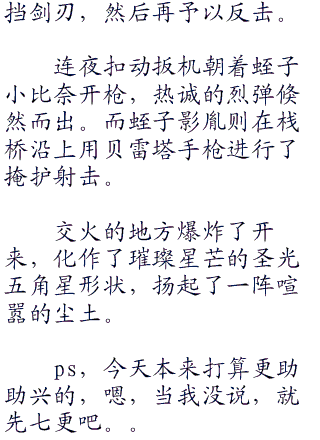 挡剑刃，然后再予以反击。
连夜扣动扳机朝着蛭子
小比奈开枪，热诚的烈弹倏
然而出。而蛭子影胤则在栈
桥沿上用贝雷塔手枪进行了
掩护射击。
交火的地方爆炸了开
来，化作了璀璨星芒的圣光
五角星形状，扬起了一阵喧
嚣的尘土。
ps，今天本来打算更助
助兴的，嗯，当我没说，就
先七更吧。。